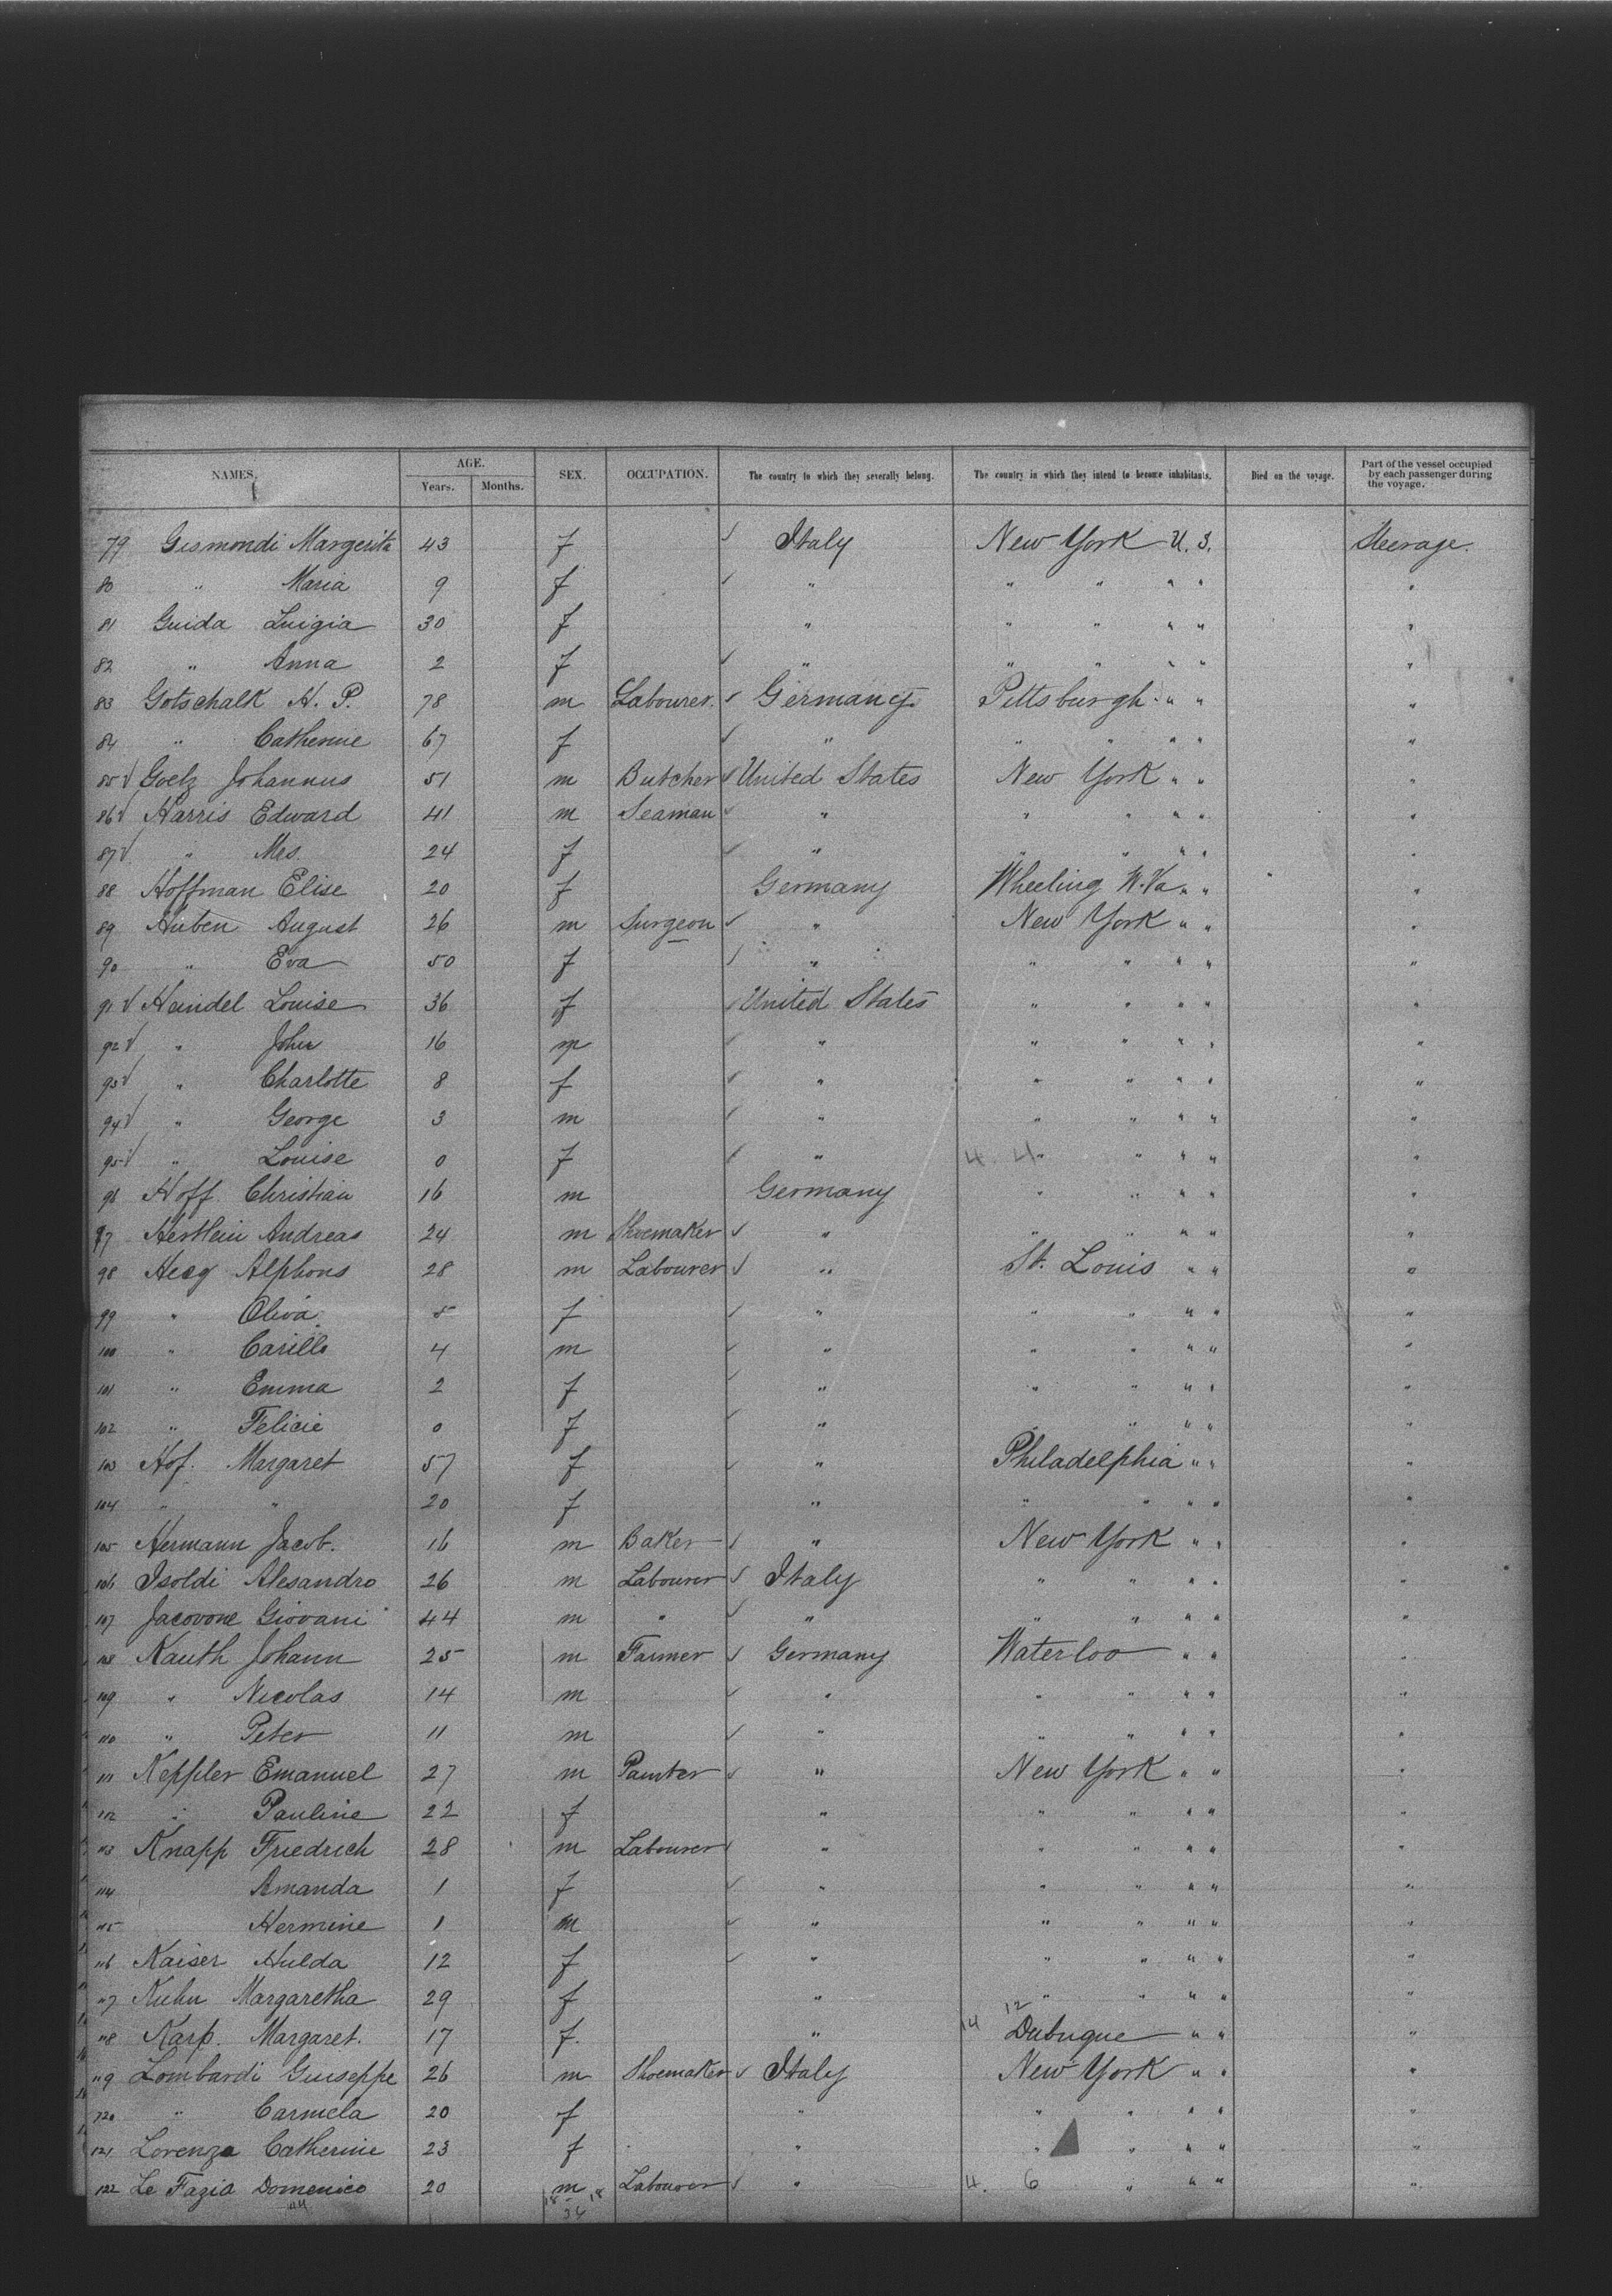 NAMES. AGE. SEX. OCCUPATION. The country to which they severally belong. The country in which they intend to become inhabitants. Died on the voyage. Part of the vessel occupied by each passenger during the voyage.
Years. Months.
79 Gismondi Margerita 43 f Italy New York U.S. Steerage.
80 " Maria 9 f " " " " " "
81 Guida Luigia 30 f " " " " " "
82 " Anna 2 f " " " " " "
83 Gotschalk H. P. 78 m Labourer. Germany Pittsburgh " " "
84 " Catherine 67 f " " " " " "
85 Goelz Johannus 51 m Butcher United States New York " " "
86 Harris Edward 41 m Seaman " " " " " "
87 " Mrs. 24 f " " " " " "
88 Hoffman Elise 20 f Germany Wheeling W. Va " " "
89 Huben August 26 m Surgeon " New York " " "
90 " Eva 50 f " " " " " "
91 Heindel Louise 36 f United States " " " " "
92 " John 16 m " " " " " "
93 " Charlotte 8 f " " " " " "
94 " George 3 m " " " " " "
95 " Louise 0 f " 4. 4 " " " " "
96 Hoff Christian 16 m Germany " " " " "
97 Hertlein Andreas 24 m Shoemaker " " " " " "
98 Alphons 28 m Labourer " St. Louis " " "
99 " Oliva 5 f " " " " " "
100 " Carillo 4 m " " " " " "
101 " Emma 2 f " " " " " "
102 " Felicie 0 f " " " " " "
103 Hof. Margaret 57 f " Philadelphia " " "
104 " " 20 f " " " " " "
105 Hermann Jacob. 16 m Baker " New York " " "
106 Isoldi Alesandro 26 m Labourer Italy " " " " "
107 Jacovone Giovani 44 m " " " " " " "
108 Kauth Johann 25 m Farmer Germany Waterloo " " "
109 " Nicolas 14 m " " " " " "
110 " Peter 11 m " " " " " "
111 Keppler Emanuel 27 m Painter " New York " " "
112 " Pauline 22 f " " " " " "
113 Knapp Friedrich 28 m Labourer " " " " " "
114 Amanda 1 f " " " " " "
115 Hermine 1 m " " " " " "
116 Kaiser Hulda 12 f " " " " " "
117 Kuhn Margaretha 29 f " " " " " "
118 Karp. Margaret. 17 f. " 14 12 Dubuque " " "
119 Lombardi Guiseppe 26 m Shoemaker Italy New York " " "
120 " Carmela 20 f " " " " " "
121 Lorenza Catherine 23 f " " " " " "
122 Le Fazia Domenico 20 m Labourer " 4. 6 " " " "
18 18